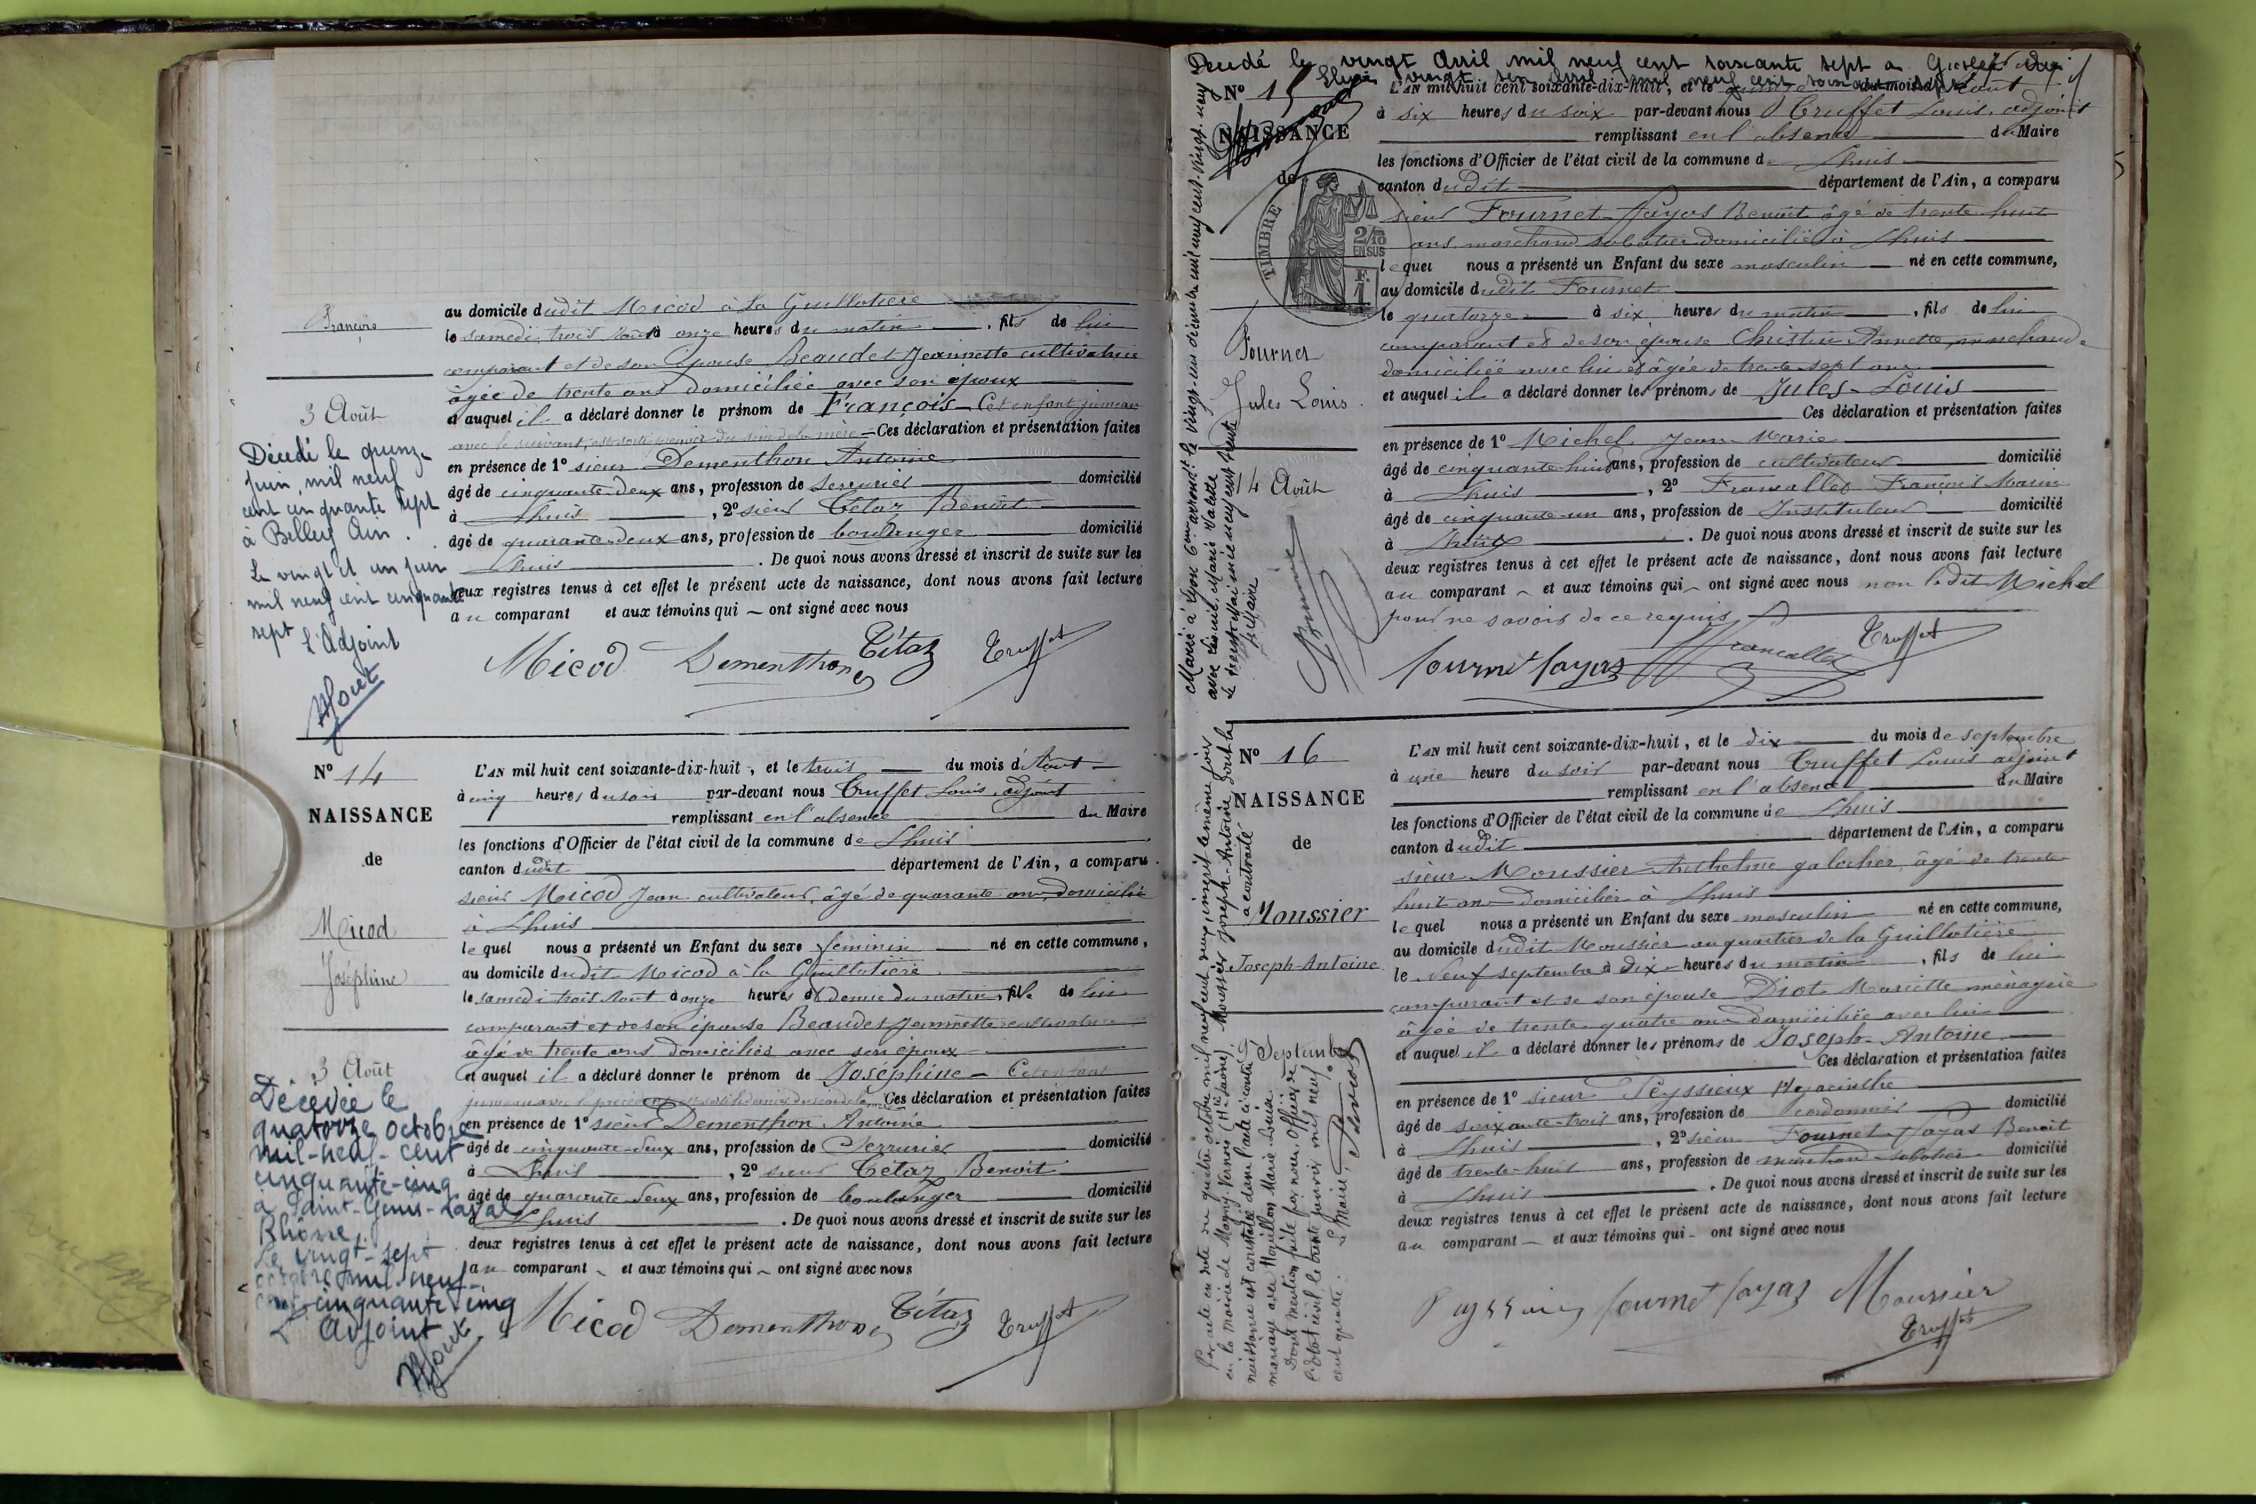 François
au domicile dudit Micod à la Guillotière
le samedi trois Août à onze heures du matin, fils de lui
comparant et de son épouse Beaudet Jeannette cultivatrice
âgée de trente ans domiciliée avec son époux
et auquel il a déclaré donner le prénom de François - Cet enfant jumeau
avec le suivant, est sorti premier du sein de la mère - Ces déclaration et présentation faites
en présence de 1º sieur Dementhon Antoine
âgé de cinquante-deux ans, profession de serrurier domicilié
à Lhuis, 2º sieur Tétaz Benoît
âgé de quarante-deux ans, profession de boulanger domicilié
Lhuis. De quoi nous avons dressé et inscrit de suite sur les
deux registres tenus à cet effet le présent acte de naissance, dont nous avons fait lecture
au comparant et aux témoins qui ont signé avec nous
Micod Dementhon Tétaz Truffet
3 Août
Décédé le quinze
juin, mil neuf
cent cinquante sept
à Belley Ain.
Le vingt et un juin
mil neuf cent cinquante
sept L'Adjoint
Nº 14
NAISSANCE
de
Micod
Joséphine
3 Août
Décédée le
quatorze octobre
mil-neuf-cent
cinquante-cinq
à Saint-Genis-Laval
Rhône.
Le vingt-sept
octobre mil neuf
cent cinquante cinq
L'Adjoint
L'AN mil huit cent soixante-dix-huit, et le trois du mois d'Août
à cinq heures du soir par-devant nous Truffet Louis, adjoint
remplissant en l'absence du Maire
les fonctions d'Officier de l'état civil de la commune de Lhuis
canton dudit département de l'Ain, a comparu
sieur Micod Jean cultivateur, âgé de quarante ans domicilié
à Lhuis
lequel nous a présenté un Enfant du sexe féminin né en cette commune,
au domicile dudit Micod à la Guillotière
le samedi trois Août à onze heures & demie du matin, fille de lui
comparant et de son épouse Beaudet Jeannette cultivatrice
âgée de trente ans domiciliée avec son époux
et auquel il a déclaré donner le prénom de Joséphine - Cet enfant
Ces déclaration et présentation faites
en présence de 1º sieur Dementhon Antoine
âgé de cinquante-deux ans, profession de serrurier domicilié
à Lhuis, 2º sieur Tétaz Benoit
âgé de quarante deux ans, profession de boulanger domicilié
à Lhuis. De quoi nous avons dressé et inscrit de suite sur les
deux registres tenus à cet effet le présent acte de naissance, dont nous avons fait lecture
au comparant et aux témoins qui ont signé avec nous
Micod Dementhon Tétaz Truffet
Décédé le vingt Avril mil neuf cent soixante sept à
vingt six Avril mil neuf cent soixante sept
Nº 15
NAISSANCE
de
TIMBRE
2/10 EN SUS
F. 1
Fournet
Jules Louis
14 Août
L'AN mil huit cent soixante-dix-huit, et le quinze du mois d'Août
à six heures du soir par-devant nous Truffet Louis, adjoint
remplissant en l'absence du Maire
les fonctions d'Officier de l'état civil de la commune de Lhuis
canton dudit département de l'Ain, a comparu
sieur Fournet-Fayas Benoît âgé de trente huit
ans, marchand sabotier domicilié à Lhuis
lequel nous a présenté un Enfant du sexe masculin né en cette commune,
au domicile dudit Fournet
le quatorze à six heures du matin, fils de lui
comparant et de son épouse Christin Annette marchande
domiciliée avec lui et âgée de trente-sept ans
et auquel il a déclaré donner les prénoms de Jules-Louis
Ces déclaration et présentation faites
en présence de 1º Michel Jean Marie
âgé de cinquante-huit ans, profession de cultivateur domicilié
à Lhuis, 2º Francallet François Marin
âgé de cinquante-un ans, profession de Instituteur domicilié
à Lhuis. De quoi nous avons dressé et inscrit de suite sur les
deux registres tenus à cet effet le présent acte de naissance, dont nous avons fait lecture
au comparant et aux témoins qui ont signé avec nous non ledit Michel
pour ne savoir de ce requis
Fournet Fayas Francallet Truffet
Marié à Lyon 6me arrondt le vingt-un décembre mil neuf cent vingt-neuf
Le trente Mai mil neuf cent trente
Le Maire
Nº 16
NAISSANCE
de
Moussier
Joseph-Antoine
9 Septembre
L'AN mil huit cent soixante-dix-huit, et le dix du mois de septembre
à une heure du soir par-devant nous Truffet Louis adjoint
remplissant en l'absence du Maire
les fonctions d'Officier de l'état civil de la commune de Lhuis
canton dudit département de l'Ain, a comparu
sieur Moussier Anthelme galocher, âgé de trente
huit ans domicilié à Lhuis
lequel nous a présenté un Enfant du sexe masculin né en cette commune,
au domicile dudit Moussier au quartier de la Guillotière
le neuf septembre à dix heures du matin, fils de lui
comparant et de son épouse Diot Mariette ménagère
âgée de trente quatre ans domiciliée avec lui
et auquel il a déclaré donner les prénoms de Joseph-Antoine
Ces déclaration et présentation faites
en présence de 1º sieur Peyssieux Hyacinthe
âgé de soixante-trois ans, profession de cordonnier domicilié
à Lhuis, 2º sieur Fournet-Fayas Benoit
âgé de trente-huit ans, profession de marchand sabotier domicilié
à Lhuis. De quoi nous avons dressé et inscrit de suite sur les
deux registres tenus à cet effet le présent acte de naissance, dont nous avons fait lecture
au comparant et aux témoins qui ont signé avec nous
Peyssieux Fournet Fayas Moussier
Truffet
Par acte en date du quatre octobre mil neuf cent deux, inscrit le même jour
en la mairie de Magny-Vernois (Hte Saône), Moussier Joseph-Antoine dont la
naissance est constatée dans l'acte ci-contre a contracté
mariage avec Houillon Marie Lucie.
Dont mention faite par nous, Officier de
l'état civil, le trente janvier mil neuf
cent quatre. Le Maire,